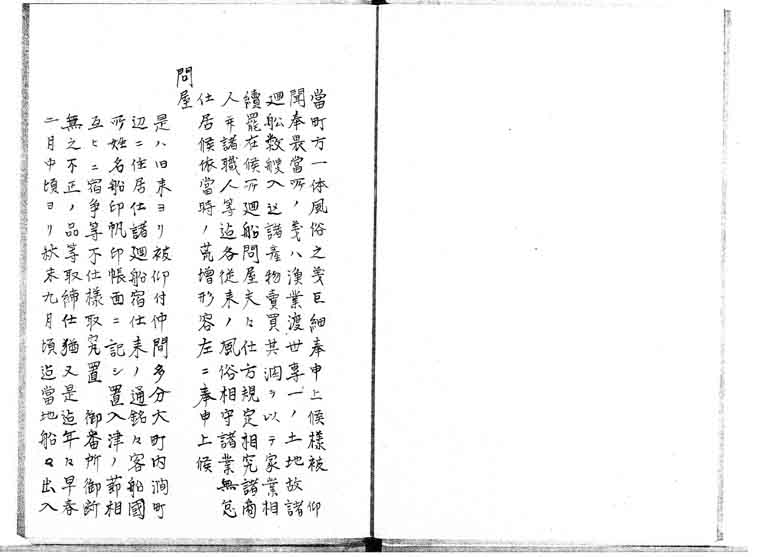 當町方一体風俗之義巨細奉申上候様被 仰
聞奉畏當所ノ義ハ漁業渡世専一ノ土地故諸
廻船数艘入込諸産物賣買其潤ヲ以テ家業相
續罷在候所廻船問屋夫々仕方規定相究諸商
人并諸職人等迠各従来ノ風俗相守諸業無怠
仕居候依當時ノ荒増形容左ニ奉申上候
問屋
是ハ旧来ヨリ被仰付仲間多分大町内澗町
辺ニ住居仕諸廻船宿仕来ノ通銘々客船國
所姓名船印帆印帳面ニ記シ置入津ノ節相
互ヒニ宿争等不仕様取究置 御番所御断
無之不正ノ品等取締仕猶又是迠年々早春
二月中頃ヨリ秋末九月頃迠當地船々出入